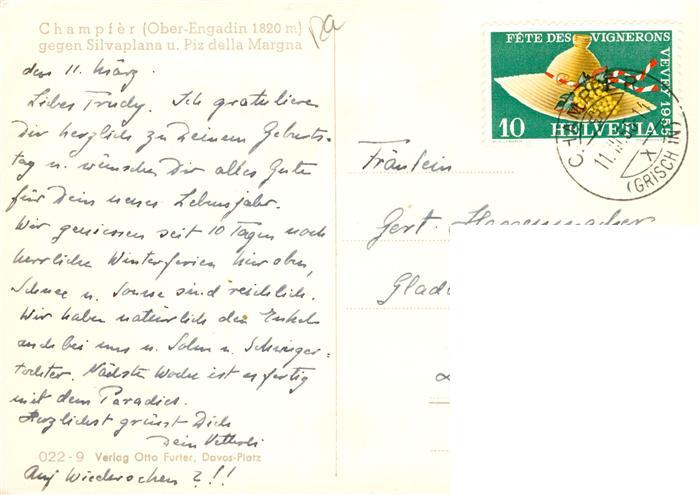 Champfèr (Ober-Engadin 1820 m)
gegen Silvaplana u. Piz della Margna
den 11. März.
Liebes Trudy. Ich gratuliere
Dir herzlich zu Deinem Geburts-
tag u. wünsche Dir alles Gute
für Dein neues Lebensjahr.
Wir geniessen seit 10 Tagen noch
herrliche Winterferien hier oben,
Schnee u. Sonne sind reichlich.
Wir haben natürlich den Enkel
auch bei uns u. Sohn u. Schwieger-
tochter. Nächste Woche ist es fertig
mit dem Paradies.
Herzlichst grüsst Dich
Dein
022-9 Verlag Otto Furter, Davos-Platz
Auf Wiedersehen ?!!
FÊTE DES VIGNERONS
VEVEY 1955
10 HELVETIA
CHAMPFER
11.III.
(GRISCHUN)
Fräulein
Gert.